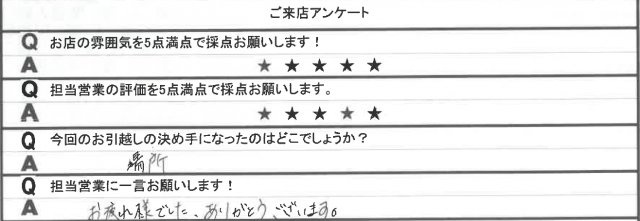 ご来店アンケート
Q お店の雰囲気を5点満点で採点お願いします！
A ★ ★ ★ ★ ★
Q 担当営業の評価を5点満点で採点お願いします。
A ★ ★ ★ ★ ★
Q 今回のお引越しの決め手になったのはどこでしょうか？
A 場所
Q 担当営業に一言お願いします！
A お疲れ様でした、ありがとうございます。